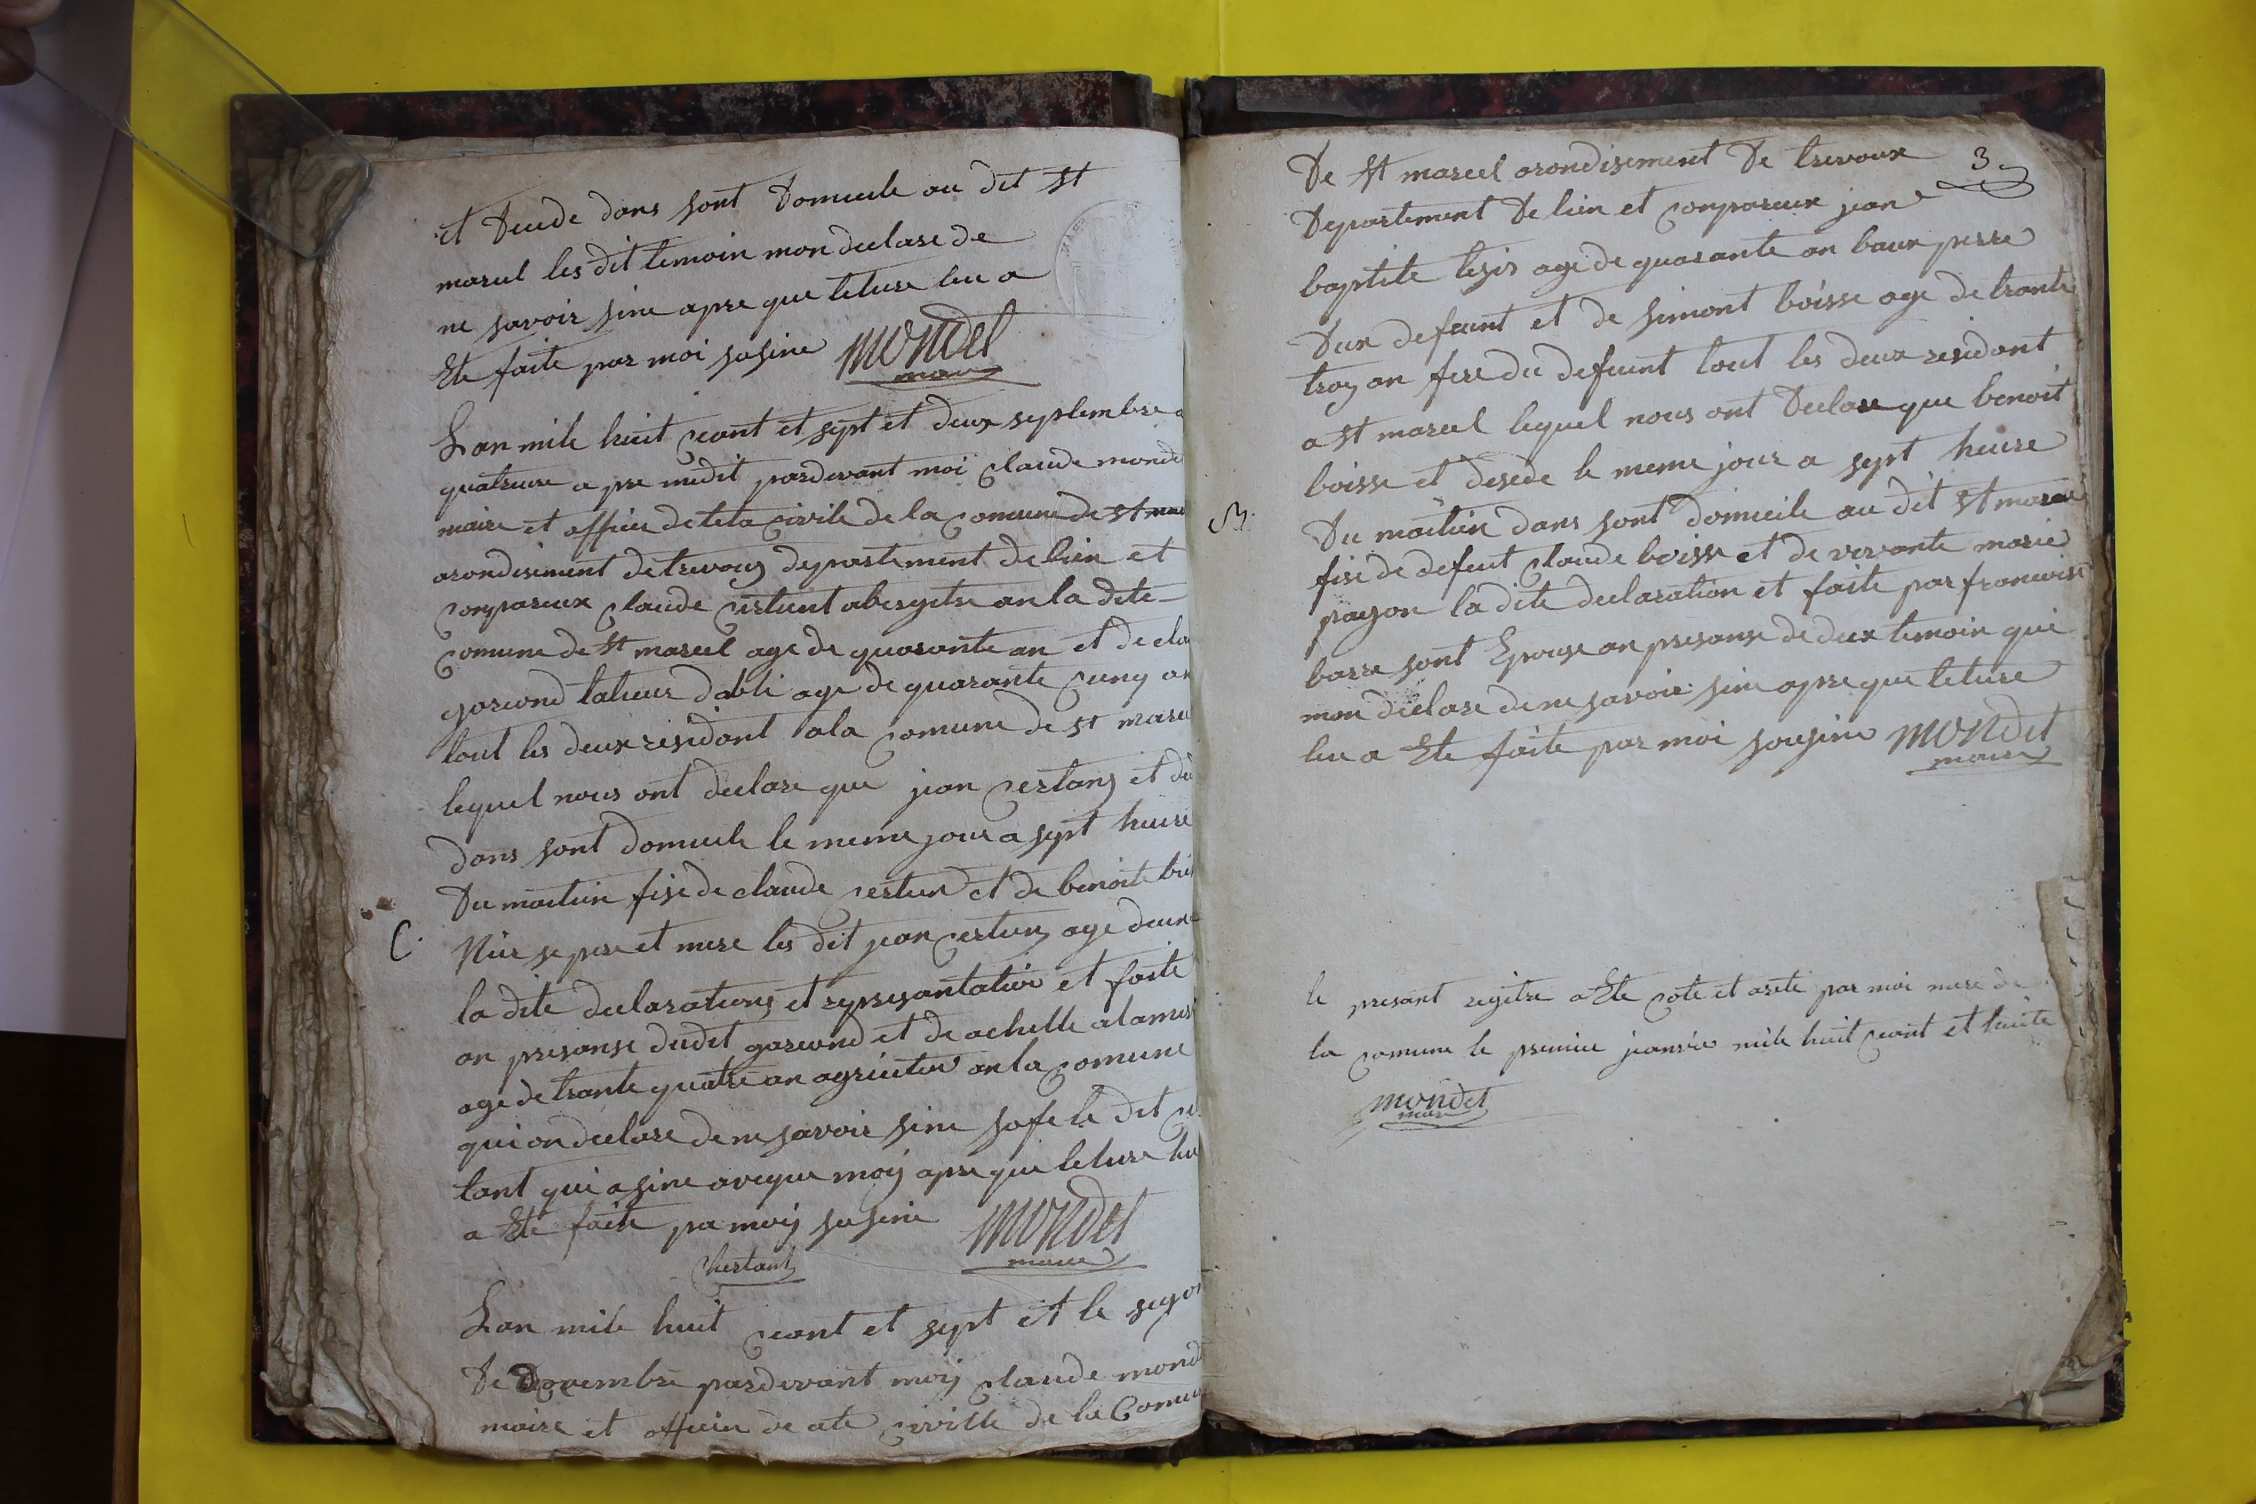 et decede dans sont domicile au dit st
marcel les dit temoin mon declare de
ne savoir sine apre que leture leu a
Ete faite par moi susine mondet
maire
Lan mile huit cent et sept et deux septembre a
quatreure a pre midit pardevant moi claude mondet
maire et officie de leta civile de la comune de st mar
arondisement de trevoux departement de lein et
compareux claude certent abesgetre an la dite
comune de st marcel age de quarante an et de cla
garcond talieur dabli age de quarante cinq an
tout les deux residant a la comune de st marcel
lequel nous ont declare que jean certans et de
dans sont domicile le meme jour a sept heure
Du maituin fise de claude certen et de benoite
C. se pere et mere les dit jean certens age deune
la dite declarations et represantation et faite
an presanse dudit garcond et de achille alames
age de trante quatre an agriculteu an la comune
qui on declare de ne savoir sine sofe le dit
tant qui a sine aveque moij apre que leture leu
a Ete faite pa moij susine mondet
Chertant maire
Lan mile huit cent et sept et le segon
De Novembre pardevant moij claude mondet
maire et officie de ate civille de la Comun
3
De st marcel arondisement de trevoux
Departement de lien et compareux jean
baptite age de quarante an baux perre
Dux defunt et de simont boisse age de trante
troy an frere du defunt tout les deux residant
a st marcel lequel nous ont Declare que benoit
boisse et desede le meme jour a sept heure
B. Du maituin dans sont domicile au dit st marcel
fise de defeut claude boisse et de vivante marie
payon la dite declaration et faite par francoise
barre sont Epouse an presanse de deux temoin qui
mon declare de ne savoir sine apre que leture
leu a Ete faite par moi sousine mondet
maire
le presant regitre a Ete cote et arete par moi mere de
la comune le premier janvie mile huit cent et huite
mondet
maire